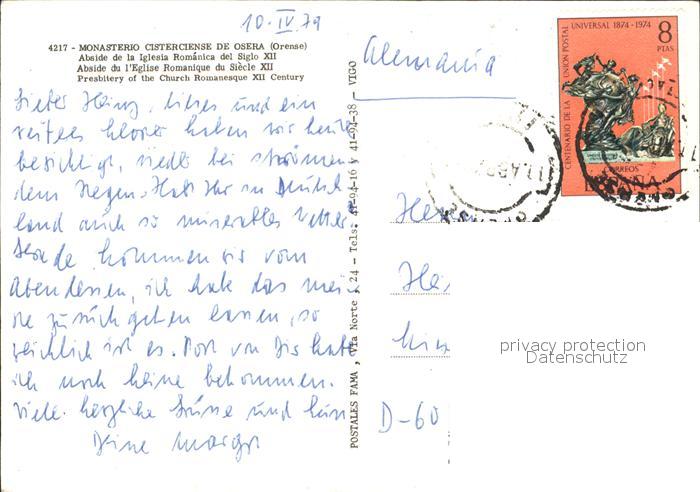 10. IV. 79
4217 - MONASTERIO CISTERCIENSE DE OSERA (Orense)
Abside de la Iglesia Románica del Siglo XII
Abside du l'Eglise Romanique du Siècle XII
Presbitery of the Church Romanesque XII Century
Lieber Heinz, dieses und ein
weiteres Kloster haben wir heute
besichtigt, wieder bei strömen-
dem Regen. Habt Ihr in Deutsch-
land auch so miserables Wetter?
Gerade kommen wir vom
Abendessen, ich habe das mei-
ne zurück gehen lassen, so
reichlich ist es. Post von Dir habe
ich noch keine bekommen.
Viele herzliche Grüsse und
Deine
POSTALES FAMA, Via Norte, 24 - Tels: 41-94-16 y 41-94-38 - VIGO
Alemania
CENTENARIO DE LA UNION POSTAL UNIVERSAL 1874-1974
8
PTAS
CORREOS
ESPAÑA
D-60
privacy protection
Datenschutz